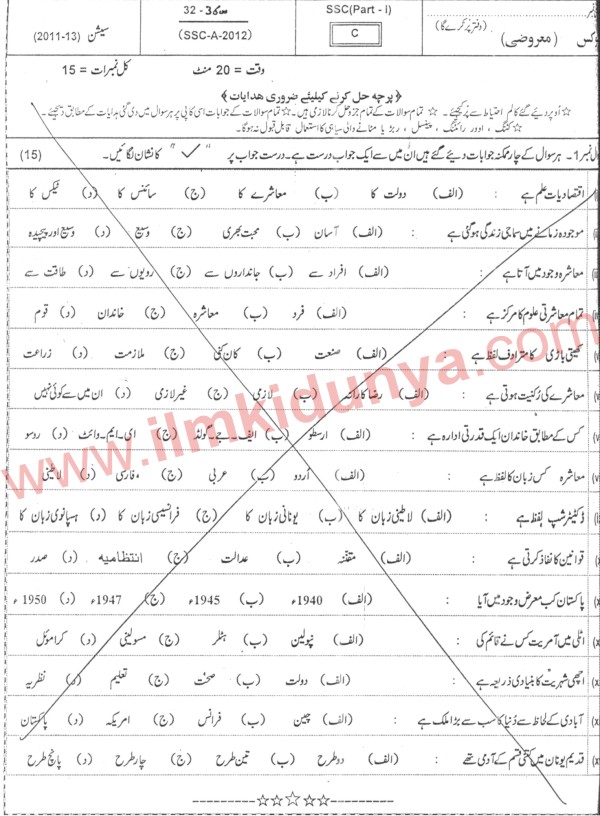 32 - سدی3
(SSC-A-2012)
SSC(Part - I)
C
(دفتر پُر کرے گا)
(معروضی)
سیشن (2011-13)
وقت = 20 منٹ کل نمبرات = 15
﴿پرچہ حل کرنے کیلیئے ضروری ھدایات﴾
☆ اُوپر دیئے گئے کالم احتیاط سے پُر کیجیئے۔ ☆ تمام سوالات کے تمام جزو حل کرنا لازمی ہیں۔ ☆ تمام سوالات کے جوابات اسی کاپی پر ہر سوال میں دی گئی ہدایات کے مطابق دیجیئے۔
☆ کٹنگ، اوور رائٹنگ، پینسل، ربڑ یا مٹانے والی سیاہی کا استعمال قابل قبول نہ ہوگا۔
نمبر1۔ ہر سوال کے چار ممکنہ جوابات دیئے گئے ہیں اُن میں سے ایک جواب درست ہے۔ درست جواب پر " ✓ " کا نشان لگائیں۔ (15)
اقتصادیات علم ہے : (الف) دولت کا (ب) معاشرے کا (ج) سائنس کا (د) ٹیکس کا
موجودہ زمانے میں سماجی زندگی ہو گئی ہے : (الف) آسان (ب) محبت بھری (ج) وسیع (د) وسیع اور پیچیدہ
معاشرہ وجود میں آتا ہے : (الف) افراد سے (ب) جانداروں سے (ج) رویوں سے (د) طاقت سے
تمام معاشرتی علوم کا مرکز ہے : (الف) فرد (ب) معاشرہ (ج) خاندان (د) قوم
کھیتی باڑی کا مترادف لفظ ہے : (الف) صنعت (ب) کان کنی (ج) ملازمت (د) زراعت
معاشرے کی رُکنیت ہوتی ہے : (الف) رضا کارانہ (ب) لازمی (ج) غیر لازمی (د) ان میں سے کوئی نہیں
کس کے مطابق خاندان ایک قدرتی ادارہ ہے : (الف) ارسطو (ب) ایف۔جے۔گولڈ (ج) ای۔ایم۔وائٹ (د) روسو
معاشرہ کس زبان کا لفظ ہے : (الف) اُردو (ب) عربی (ج) فارسی (د) لاطینی
ڈکٹیٹر شپ لفظ ہے : (الف) لاطینی زبان کا (ب) یونانی زبان کا (ج) فرانسیسی زبان کا (د) ہسپانوی زبان کا
قوانین کا نفاذ کرتی ہے : (الف) مقنّنہ (ب) عدالت (ج) انتظامیہ (د) صدر
پاکستان کب معرض وجود میں آیا : (الف) 1940ء (ب) 1945ء (ج) 1947ء (د) 1950ء
اٹلی میں آمریت کس نے قائم کی : (الف) نپولین (ب) ہٹلر (ج) مسولینی (د) کرامویل
اچھی شہریت کا بنیادی ذریعہ ہے : (الف) دولت (ب) صحت (ج) تعلیم (د) نظریہ
آبادی کے لحاظ سے دُنیا کا سب سے بڑا ملک ہے : (الف) چین (ب) فرانس (ج) امریکہ (د) پاکستان
قدیم یونان میں کتنی قسم کے آدمی تھے : (الف) دو طرح (ب) تین طرح (ج) چار طرح (د) پانچ طرح
www.ilmkidunya.com